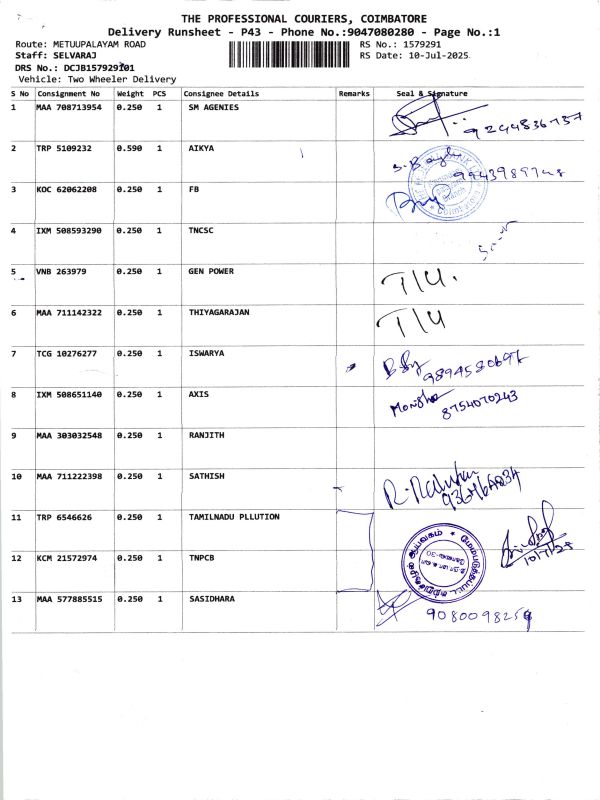 THE PROFESSIONAL COURIERS, COIMBATORE
Delivery Runsheet - P43 - Phone No.:9047080280 - Page No.:1
Route: METUUPALAYAM ROAD RS No.: 1579291
Staff: SELVARAJ RS Date: 10-Jul-2025
DRS No.: DCJB157929101
Vehicle: Two Wheeler Delivery
S No Consignment No Weight PCS Consignee Details Remarks Seal & Signature
1 MAA 708713954 0.250 1 SM AGENIES
9244836737
2 TRP 5109232 0.590 1 AIKYA
3 KOC 62062208 0.250 1 FB
4 IXM 508593290 0.250 1 TNCSC
5 VNB 263979 0.250 1 GEN POWER T/4.
6 MAA 711142322 0.250 1 THIYAGARAJAN T/4
7 TCG 10276277 0.250 1 ISWARYA
8 IXM 508651140 0.250 1 AXIS Monisha 8754070243
9 MAA 303032548 0.250 1 RANJITH
10 MAA 711222398 0.250 1 SATHISH
11 TRP 6546626 0.250 1 TAMILNADU PLLUTION
10/7/25
12 KCM 21572974 0.250 1 TNPCB
13 MAA 577885515 0.250 1 SASIDHARA